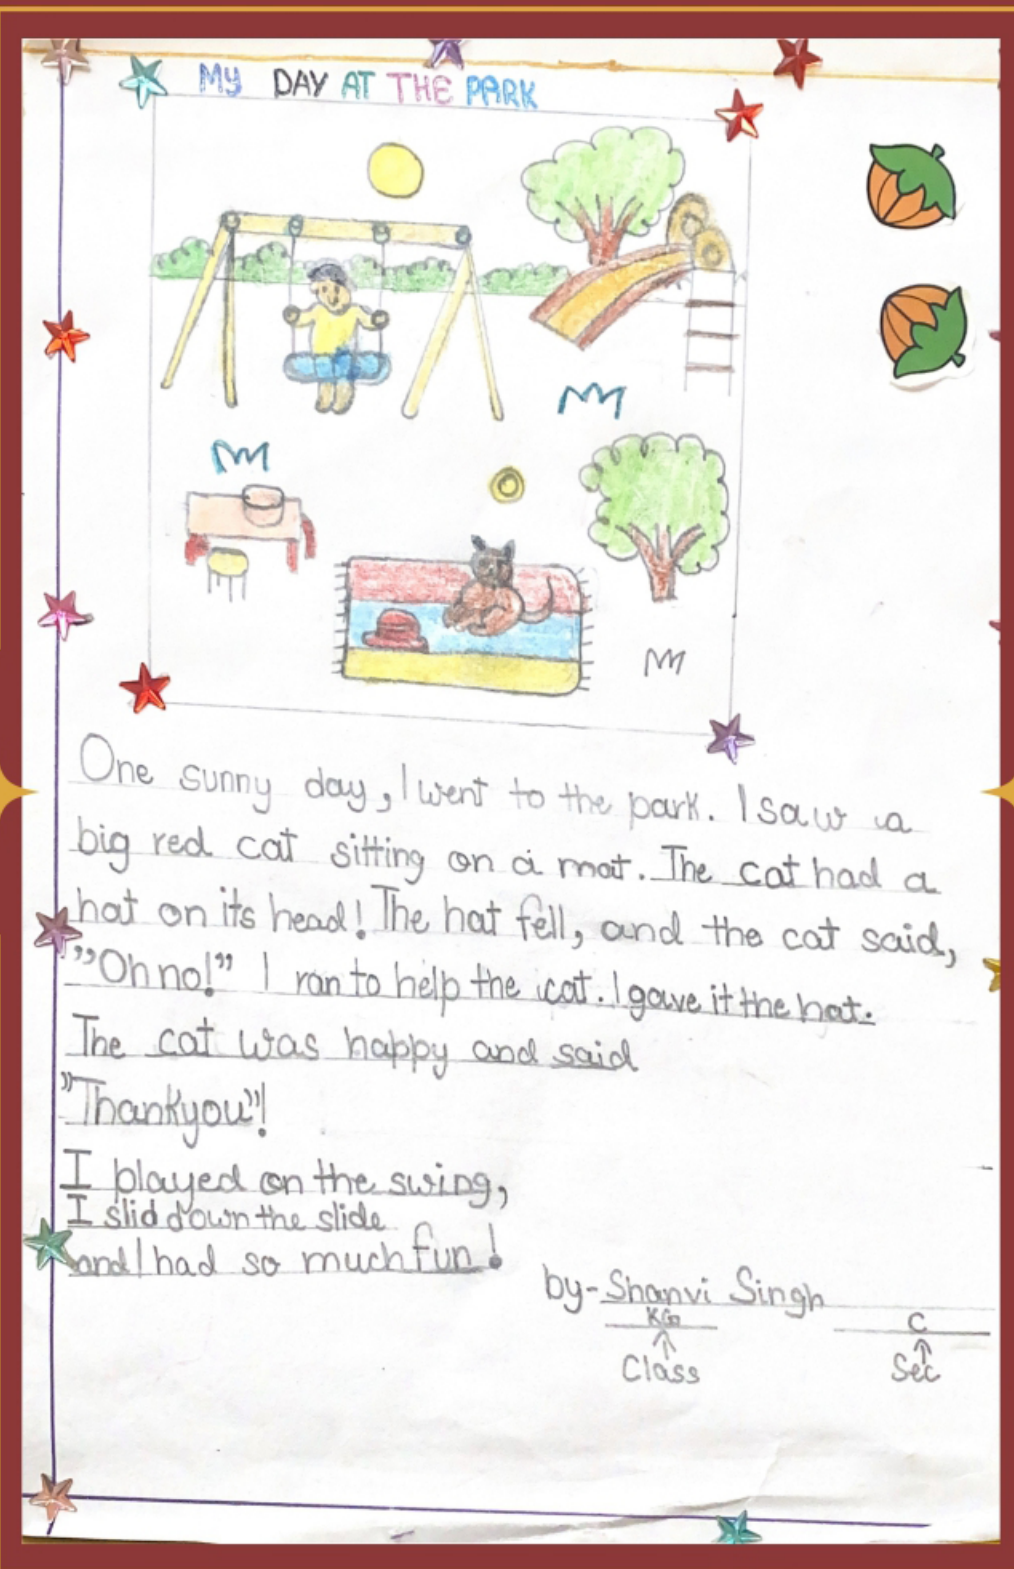 MY DAY AT THE PARK
One sunny day, I went to the park. I saw a
big red cat sitting on a mat. The cat had a
hat on its head! The hat fell, and the cat said,
"Oh no!" I ran to help the cat. I gave it the hat.
The cat was happy and said
"Thankyou"!
I played on the swing,
I slid down the slide
and I had so much fun!
by-Shanvi Singh
KG C
Class Sec